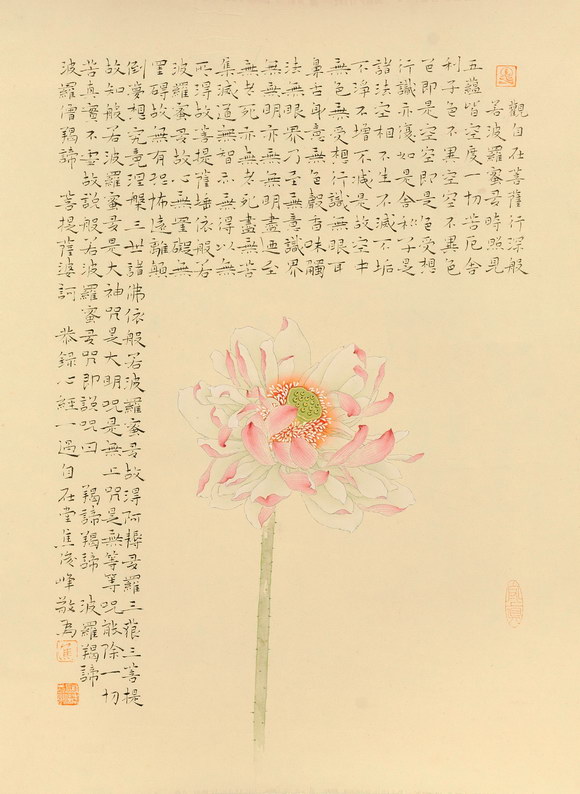 觀自在菩薩行深般
若波羅蜜多時照見
五蘊皆空度一切苦厄舍
利子色不異空空不異色
色即是空空即是色受想
行識亦復如是舍利子是
諸法空相不生不滅不垢
不淨不增不減是故空中
無色無受想行識無眼耳
鼻舌身意無色聲香味觸
法無眼界乃至無意識界
無無明亦無無明盡迺至
無老死亦無老死盡無苦
集滅道無智亦無得以無
所得故菩提薩埵依般若
波羅蜜多故心無罣礙無
罣礙故無有恐怖遠離顛
倒夢想究竟涅槃三世諸佛依般若波羅蜜多故得阿耨多羅三藐三菩提
故知般若波羅蜜多是大神咒是大明咒是無上咒是無等等咒能除一切
苦真實不虛故說般若波羅蜜多咒即說咒曰 羯諦羯諦 波羅羯諦
波羅僧羯諦 菩提薩婆訶 恭錄心經一過自在堂焦俊峰敬寫